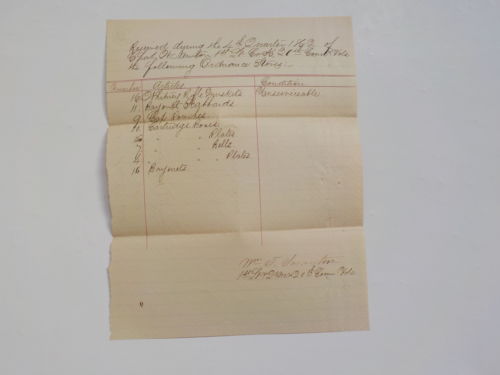 Received during the 4th Quarter 1863 of
1st Lt Co A. 20th Conn Vols
the following Ordnance Stores:
Number Articles Condition
16 Rifle Muskets Unserviceable
11 Bayonet Scabbards
9 Cap Pouches
11 Cartridge Boxes
" " Plates
7 " Belts
" " Plates
16 Bayonets
Wm
1st 20th Conn Vols